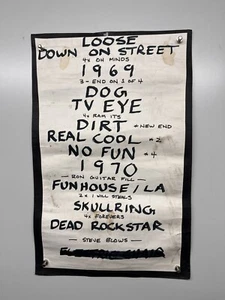 LOOSE
DOWN ON STREET
4x ON MINDS
1969
3 - END ON 2 OF 4
DOG
TV EYE
4x RAM ITS
DIRT * NEW END
REAL COOL * 2
NO FUN * 4
1970
— RON GUITAR FILL —
FUNHOUSE / LA
2 x I WILL STEALS
SKULLRING
4x FOREVERS
DEAD ROCKSTAR
— STEVE BLOWS —